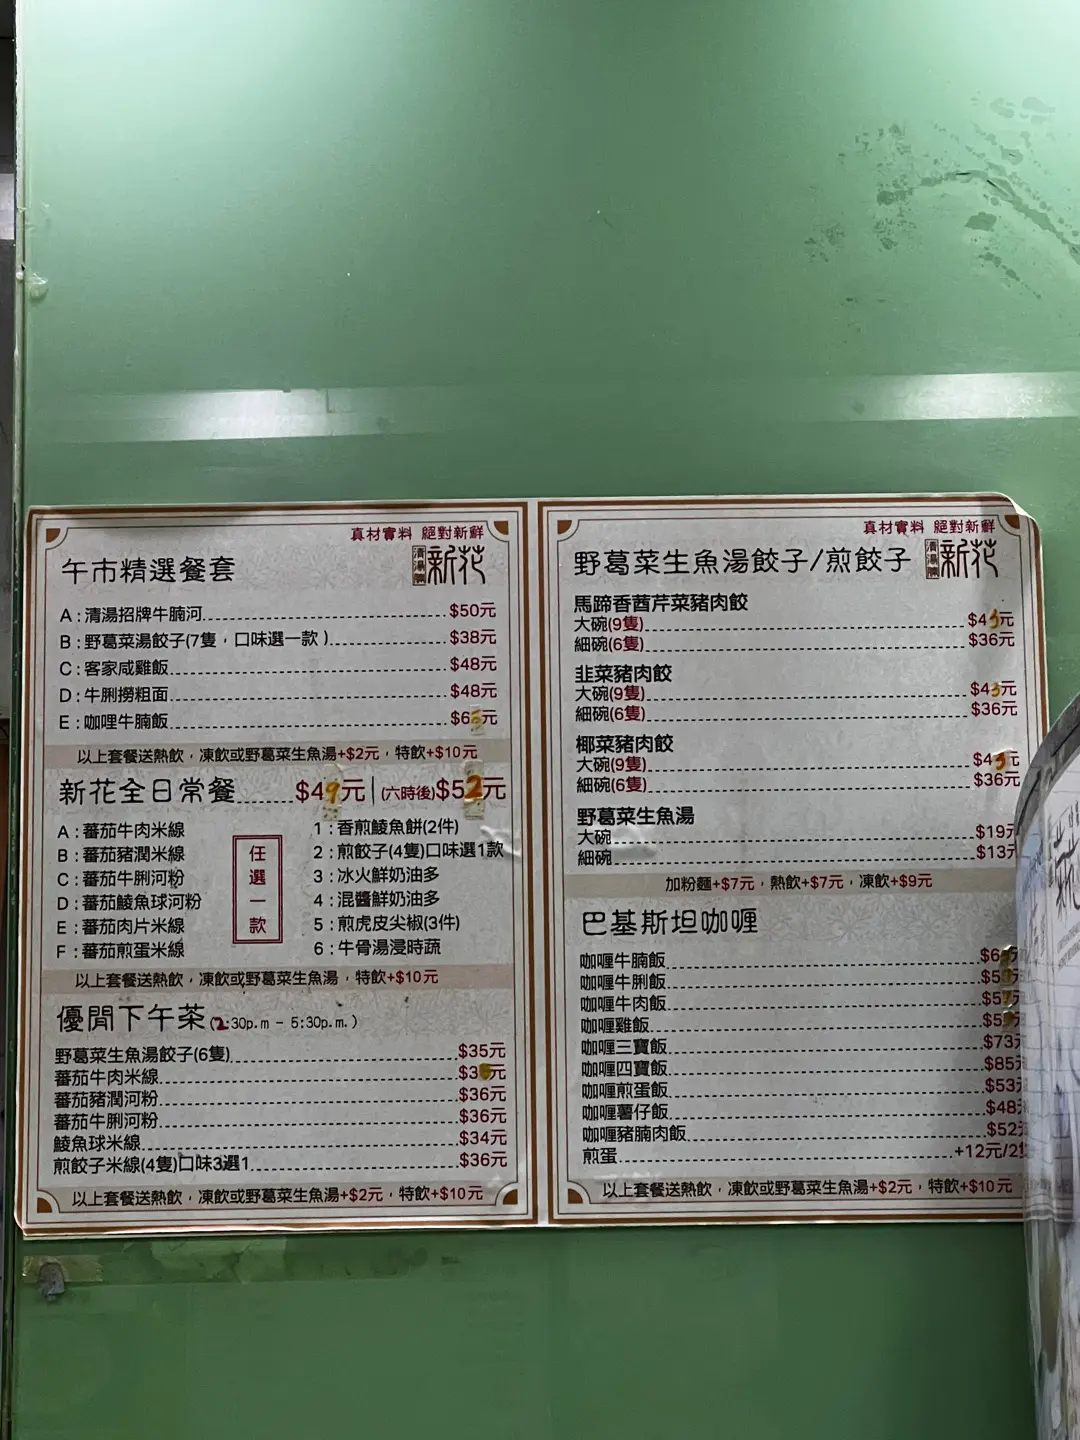 真材實料 絕對新鮮
清湯腩 新花
午市精選餐套
A : 清湯招牌牛腩河 $50元
B : 野葛菜湯餃子(7隻，口味選一款 ) $38元
C : 客家咸雞飯 $48元
D : 牛脷撈粗面 $48元
E : 咖哩牛腩飯 $6元
以上套餐送熱飲，凍飲或野葛菜生魚湯+$2元，特飲+$10元
新花全日常餐 $49元 | (六時後)$52元
A : 蕃茄牛肉米線
B : 蕃茄豬潤米線
C : 蕃茄牛脷河粉
D : 蕃茄鯪魚球河粉
E : 蕃茄肉片米線
F : 蕃茄煎蛋米線
任選一款
1 : 香煎鯪魚餅(2件)
2 : 煎餃子(4隻)口味選1款
3 : 冰火鮮奶油多
4 : 混醬鮮奶油多
5 : 煎虎皮尖椒(3件)
6 : 牛骨湯浸時蔬
以上套餐送熱飲，凍飲或野葛菜生魚湯，特飲+$10元
優閒下午茶(2:30p.m - 5:30p.m.)
野葛菜生魚湯餃子(6隻) $35元
蕃茄牛肉米線 $3元
蕃茄豬潤河粉 $36元
蕃茄牛脷河粉 $36元
鯪魚球米線 $34元
煎餃子米線(4隻)口味3選1 $36元
以上套餐送熱飲，凍飲或野葛菜生魚湯+$2元，特飲+$10元
真材實料 絕對新鮮
清湯腩 新花
野葛菜生魚湯餃子/煎餃子
馬蹄香茜芹菜豬肉餃
大碗(9隻) $43元
細碗(6隻) $36元
韭菜豬肉餃
大碗(9隻) $43元
細碗(6隻) $36元
椰菜豬肉餃
大碗(9隻) $43元
細碗(6隻) $36元
野葛菜生魚湯
大碗 $19元
細碗 $13元
加粉麵+$7元，熱飲+$7元，凍飲+$9元
巴基斯坦咖喱
咖喱牛腩飯 $6
咖喱牛脷飯 $5
咖喱牛肉飯 $57
咖喱雞飯 $5
咖喱三寶飯 $73
咖喱四寶飯 $85
咖喱煎蛋飯 $53
咖喱薯仔飯 $48
咖喱豬腩肉飯 $52
煎蛋 +12元/2隻
以上套餐送熱飲，凍飲或野葛菜生魚湯+$2元，特飲+$10元